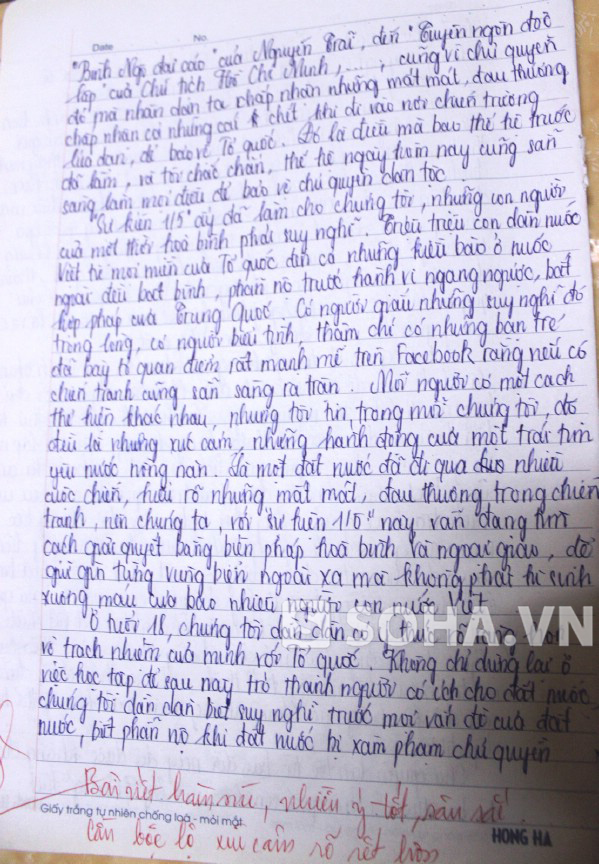 Date No.
"Bình Ngô đại cáo" của Nguyễn Trãi, đến "Tuyên ngôn độc
lập" của Chủ tịch Hồ Chí Minh, ..., cũng vì chủ quyền
đó mà nhân dân ta chấp nhận những mất mát, đau thương
chấp nhận cả những cái chết khi đi vào nơi chiến trường
lửa đạn, để bảo vệ Tổ quốc. Đó là điều mà bao thế hệ trước
đã làm, và tôi chắc chắn, thế hệ ngày hôm nay cũng sẵn
sàng làm mọi điều để bảo vệ chủ quyền dân tộc
"Sự kiện 1/5" ấy đã làm cho chúng tôi, những con người
của một thời hoà bình phải suy nghĩ. Triệu triệu con dân nước
Việt từ mọi miền của Tổ quốc đến cả những kiều bào ở nước
ngoài đều bất bình, phẫn nộ trước hành vi ngang ngược, bất
hợp pháp của Trung Quốc. Có người giấu những suy nghĩ đó
trong lòng, có người biểu tình, thậm chí có những bạn trẻ
đã bày tỏ quan điểm rất mạnh mẽ trên Facebook rằng nếu có
chiến tranh cũng sẵn sàng ra trận. Mỗi người có một cách
thể hiện khác nhau, nhưng tôi tin, trong mỗi chúng tôi, đó
đều là những xúc cảm, những hành động của một trái tim
yêu nước nồng nàn. Là một đất nước đã đi qua nhiều
cuộc chiến, hiểu rõ những mất mát, đau thương trong chiến
tranh, nên chúng ta, với "sự kiện 1/5" này vẫn đang tìm
cách giải quyết bằng biện pháp hoà bình và ngoại giao, để
giữ gìn từng vùng biển ngoài xa mà không phải hi sinh
xương máu của bao nhiêu người con nước Việt
Ở tuổi 18, chúng tôi dần dần có ý thức rõ ràng hơn
về trách nhiệm của mình với Tổ quốc. Không chỉ dừng lại ở
việc học tập để sau này trở thành người có ích cho đất nước,
chúng tôi dần dần biết suy nghĩ trước mọi vấn đề của đất
nước, biết phẫn nộ khi đất nước bị xâm phạm chủ quyền
SOHA.VN
Bài viết hàm súc, nhiều ý tốt, sâu sắc.
Giấy trắng tự nhiên chống loá - mỏi mắt HONG HA
Cần bộc lộ xúc cảm rõ rệt hơn